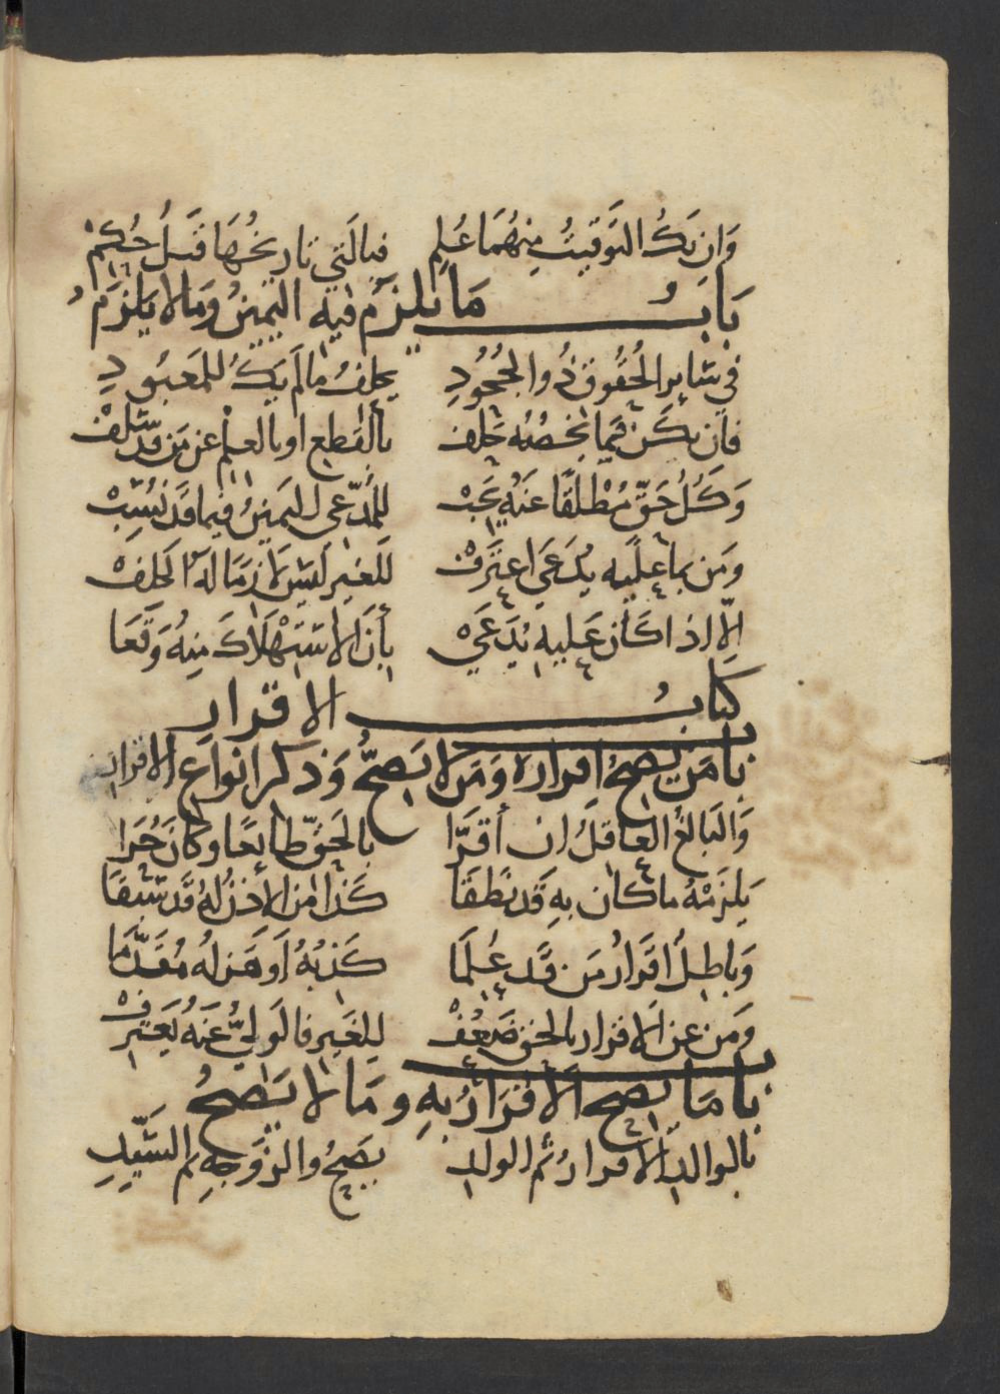 وَاِن تَكُ التَوقِيتُ مِنهُمَا عُلِم فبالَتي تاريخُهَا قَبلُ حُكِمْ
بَابُ مَا يَلزَمُ فيهِ اليَمِينُ وَمَا لا يَلزَمُ
في سَايِرِ الحُقُوقِ ذُو الجُحُودِ يحلِفُ مالَم يَكُ للمَعبُودِ
فَاِن يَكُن فيما يَخُصُّهُ حَلَف بالقَطعِ او بالعِلمِ عن مَن قَد سَلَفْ
وَكُلُ حَقٍّ مُطلَقًا عَنهُ يَجِبْ للمُدَّعِي اليَمينُ فيما قَد نُسِبْ
وَمَن بما عَلَيهِ يُدَّعَى اعتَرَفْ لِلغَيرِ لَيسَ لازِمًا لَهُ الحَلِفْ
اِلّا اذا كَانَ عَلَيهِ يُدَّعَى بِأَنَّ الاستِهلاكَ مِنهُ وَقَعَا
كتابُ الاقرار
باب مَن يَصِحُّ اقرارُه وَمَن لا يَصِحُّ وَذكر انواعِ الاقرار
وَالبَالِغُ العَاقِلُ ان أَقَرَّا بالحَقِّ طايعًا وكانَ حُرَا
يَلزَمُهُ ما كان بِهِ قَد نَطَقَا كَذا مَن الاذنُ لهُ قَد سَبَقَا
وَبَاطِلٌ اقرارُ مَن قَد عُلِمَا كَذبُهُ اَو هَزلُه مُقَدَّمَا
وَمَن عن الاقرار بالحق ضَعُفْ لِلغَيرِ فالوَليُّ عَنهُ يَعتَرِفْ
باب مَا يَصِح الاقرارُ بِهِ وَمَا لا يَصِحُّ
بالوالدِ الاقرارُ ثُم الولدِ يَصِحُّ والزَوجَةِ ثم السَيِّدِ